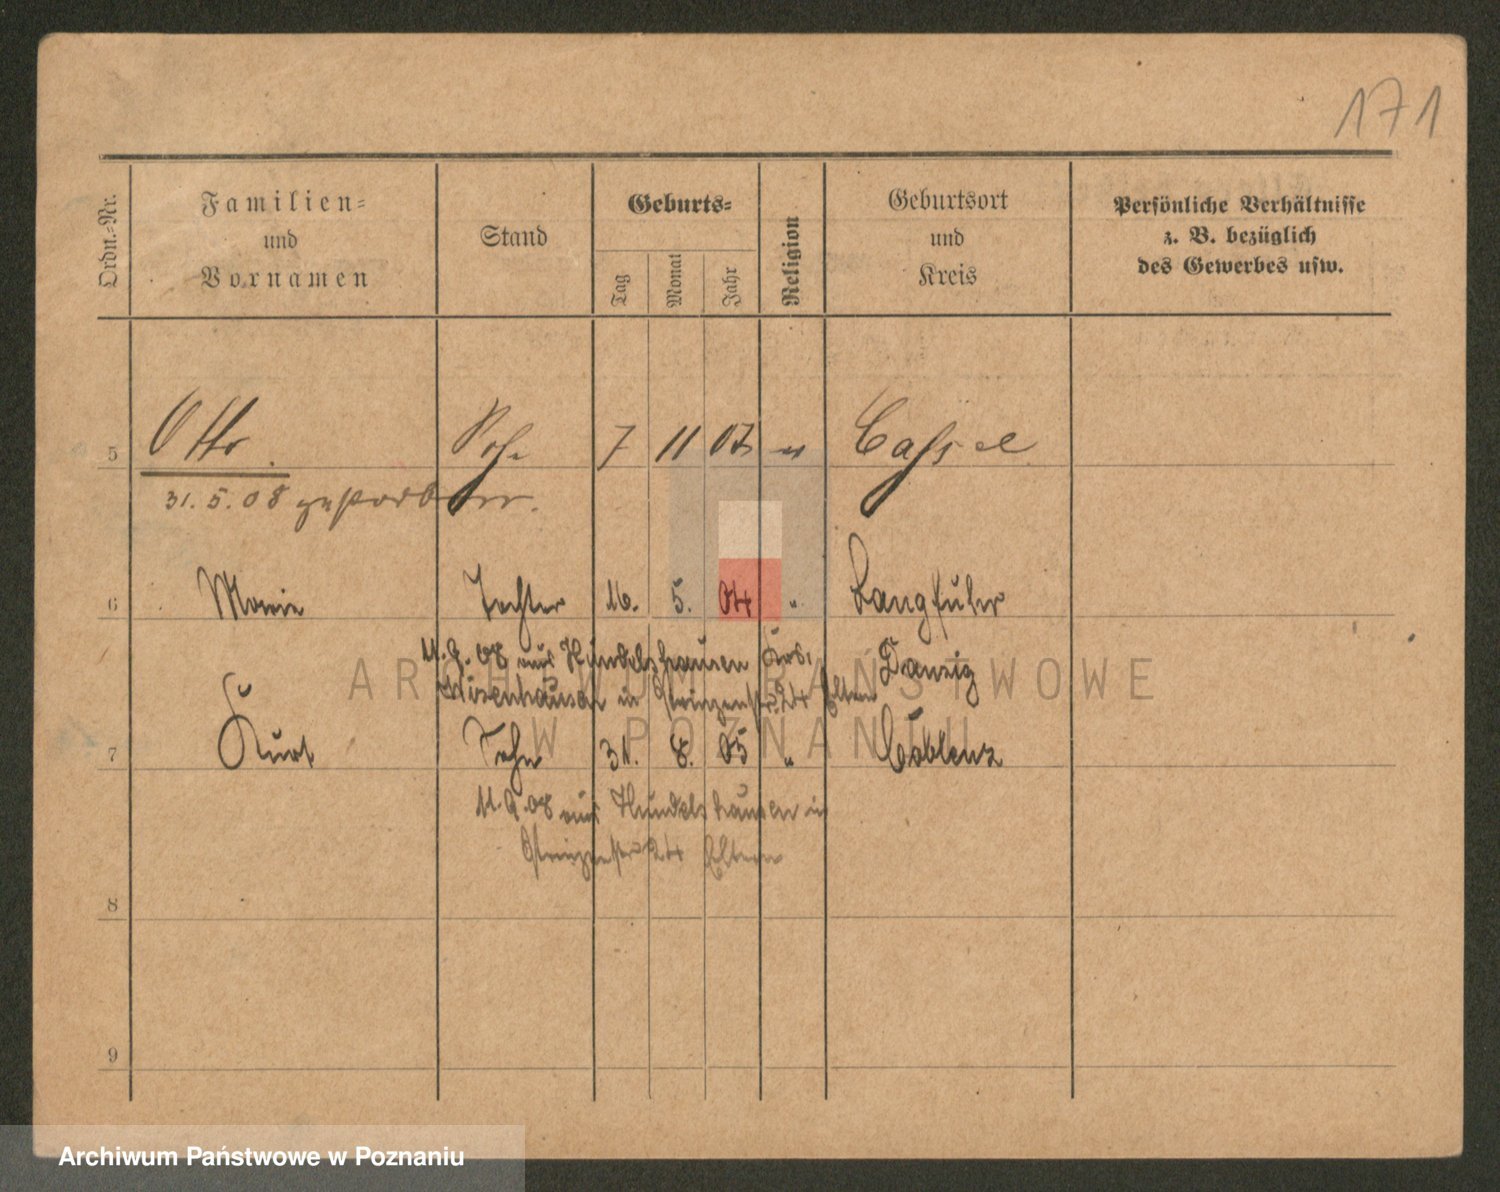 171
Ordn.=Nr.
Familien=
und
Vornamen
Stand
Geburts=
Tag
Monat
Jahr
Religion
Geburtsort
und
Kreis
Persönliche Verhältnisse
z. B. bezüglich
des Gewerbes usw.
5 Otto. Sohn 7 11 07 " Cassel
31.5.08 gestorben.
6 Marie Tochter 16. 5. 04 " Langfuhr
11.9.08 aus Hundelshausen Krs. Danzig
Witzenhausen in 24 Eltern
7 Kurt Sohn 31. 8. 05 " Coblenz
11.9.08 aus Hundelshausen in
24 Eltern
8
9
ARCHIWUM PAŃSTWOWE
W POZNANIU
Archiwum Państwowe w Poznaniu